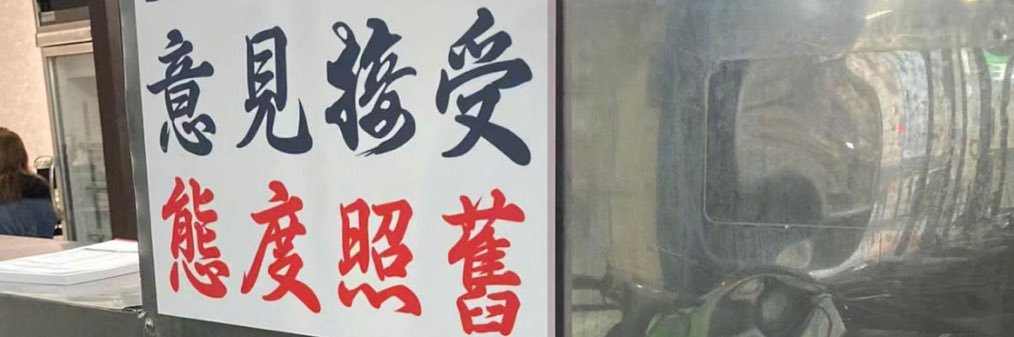 意見接受
態度照舊